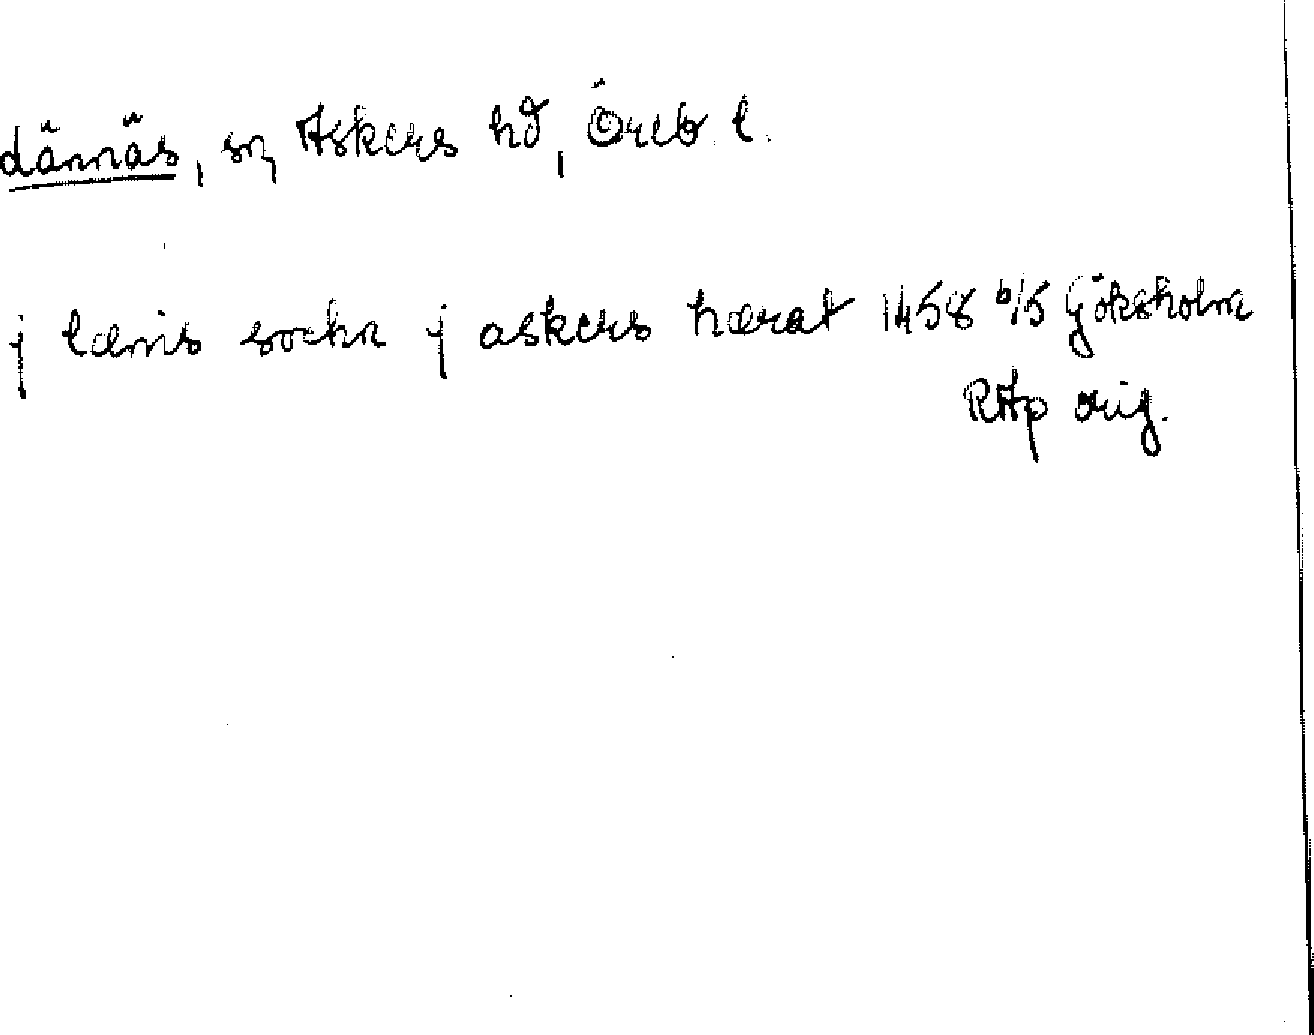 dännäs, sn, Askers hd, Öreb l.
j lænis sockn j askers hærat 1458 6/5 Göksholm
RAp orig.